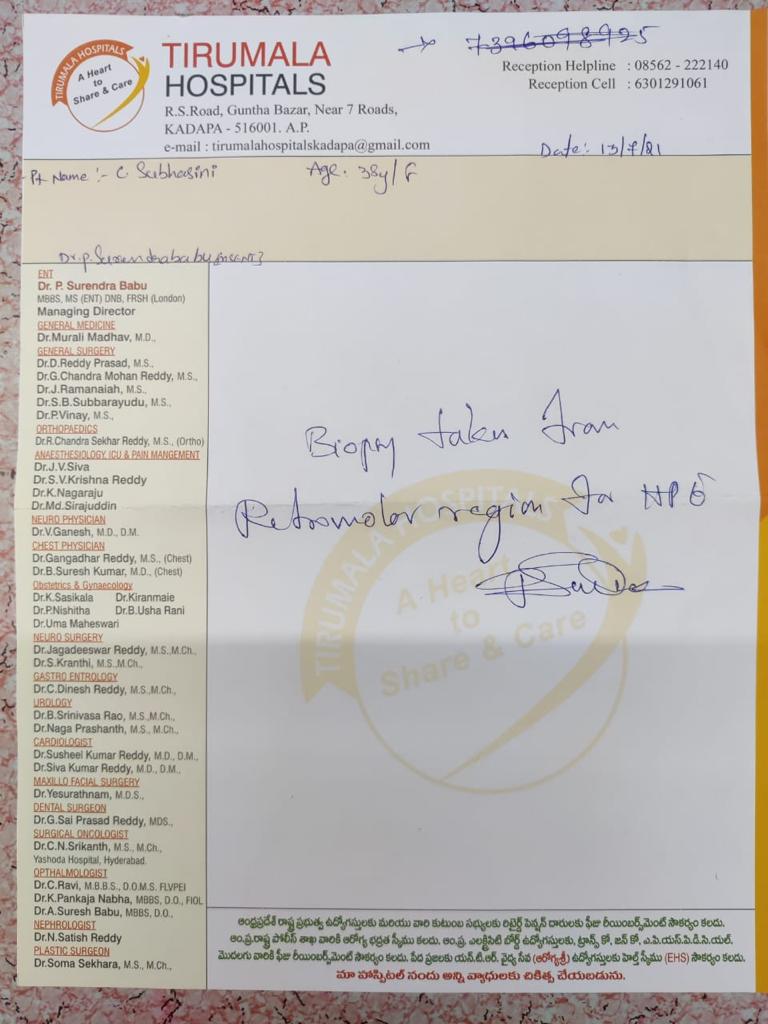 TIRUMALA HOSPITALS
A Heart
to
Share & Care
TIRUMALA
HOSPITALS
R.S.Road, Guntha Bazar, Near 7 Roads,
KADAPA - 516001. A.P.
e-mail : tirumalahospitalskadapa@gmail.com
7396098925
Reception Helpline : 08562 - 222140
Reception Cell : 6301291061
Date:- 13/7/21
Pt Name :- C. Subhasini Age. 38y/F
Dr.p.Surendrababu
ENT
Dr. P. Surendra Babu
MBBS, MS (ENT) DNB, FRSH (London)
Managing Director
GENERAL MEDICINE
Dr.Murali Madhav, M.D.,
GENERAL SURGERY
Dr.D.Reddy Prasad, M.S.,
Dr.G.Chandra Mohan Reddy, M.S.,
Dr.J.Ramanaiah, M.S.,
Dr.S.B.Subbarayudu, M.S.,
Dr.P.Vinay, M.S.,
ORTHOPAEDICS
Dr.R.Chandra Sekhar Reddy, M.S., (Ortho)
ANAESTHESIOLOGY, ICU & PAIN MANGEMENT
Dr.J.V.Siva
Dr.S.V.Krishna Reddy
Dr.K.Nagaraju
Dr.Md.Sirajuddin
NEURO PHYSICIAN
Dr.V.Ganesh, M.D., D.M.
CHEST PHYSICIAN
Dr.Gangadhar Reddy, M.S., (Chest)
Dr.B.Suresh Kumar, M.D., (Chest)
Obstetrics & Gynaecology
Dr.K.Sasikala Dr.Kiranmaie
Dr.P.Nishitha Dr.B.Usha Rani
Dr.Uma Maheswari
NEURO SURGERY
Dr.Jagadeeswar Reddy, M.S.,M.Ch.,
Dr.S.Kranthi, M.S.,M.Ch.,
GASTRO ENTROLOGY
Dr.C.Dinesh Reddy, M.S.,M.Ch.,
UROLOGY
Dr.B.Srinivasa Rao, M.S.,M.Ch.,
Dr.Naga Prashanth, M.S., M.Ch.,
CARDIOLOGIST
Dr.Susheel Kumar Reddy, M.D., D.M.,
Dr.Siva Kumar Reddy, M.D., D.M.,
MAXILLO FACIAL SURGERY
Dr.Yesurathnam, M.D.S.,
DENTAL SURGEON
Dr.G.Sai Prasad Reddy, MDS.,
SURGICAL ONCOLOGIST
Dr.C.N.Srikanth, M.S., M.Ch.,
Yashoda Hospital, Hyderabad.
OPTHALMOLOGIST
Dr.C.Ravi, M.B.B.S., D.O.M.S. FLVPEI
Dr.K.Pankaja Nabha, MBBS, D.O., FIOL
Dr.A.Suresh Babu, MBBS, D.O.,
NEPHROLOGIST
Dr.N.Satish Reddy
PLASTIC SURGEON
Dr.Soma Sekhara, M.S., M.Ch.,
Biopsy taken from
Retromolar region for HPE
TIRUMALA HOSPITALS
A Heart
to
Share & Care
ఆంధ్రప్రదేశ్ రాష్ట్ర ప్రభుత్వ ఉద్యోగస్తులకు మరియు వారి కుటుంబ సభ్యులకు రిటైర్డ్ పెన్షన్ దారులకు ఫీజు రీయింబర్స్‌మెంట్ సౌకర్యం కలదు.
ఆం.ప్ర.రాష్ట్ర పోలీస్ శాఖ వారికి ఆరోగ్య భద్రత స్కీము కలదు. ఆం.ప్ర. ఎలక్ట్రిసిటి బోర్డ్ ఉద్యోగస్తులకు, ట్రాన్స్ కో, జన్ కో, ఎ.పి.యస్.పి.డి.సి.యల్.
మొదలగు వారికి ఫీజు రీయింబర్స్‌మెంట్ సౌకర్యం కలదు. పేద ప్రజలకు యన్.టి.ఆర్. వైద్య సేవ (ఆరోగ్యశ్రీ) ఉద్యోగస్తులకు హెల్త్ స్కీము (EHS) సౌకర్యం కలదు.
మా హాస్పిటల్ నందు అన్ని వ్యాధులకు చికిత్స చేయబడును.